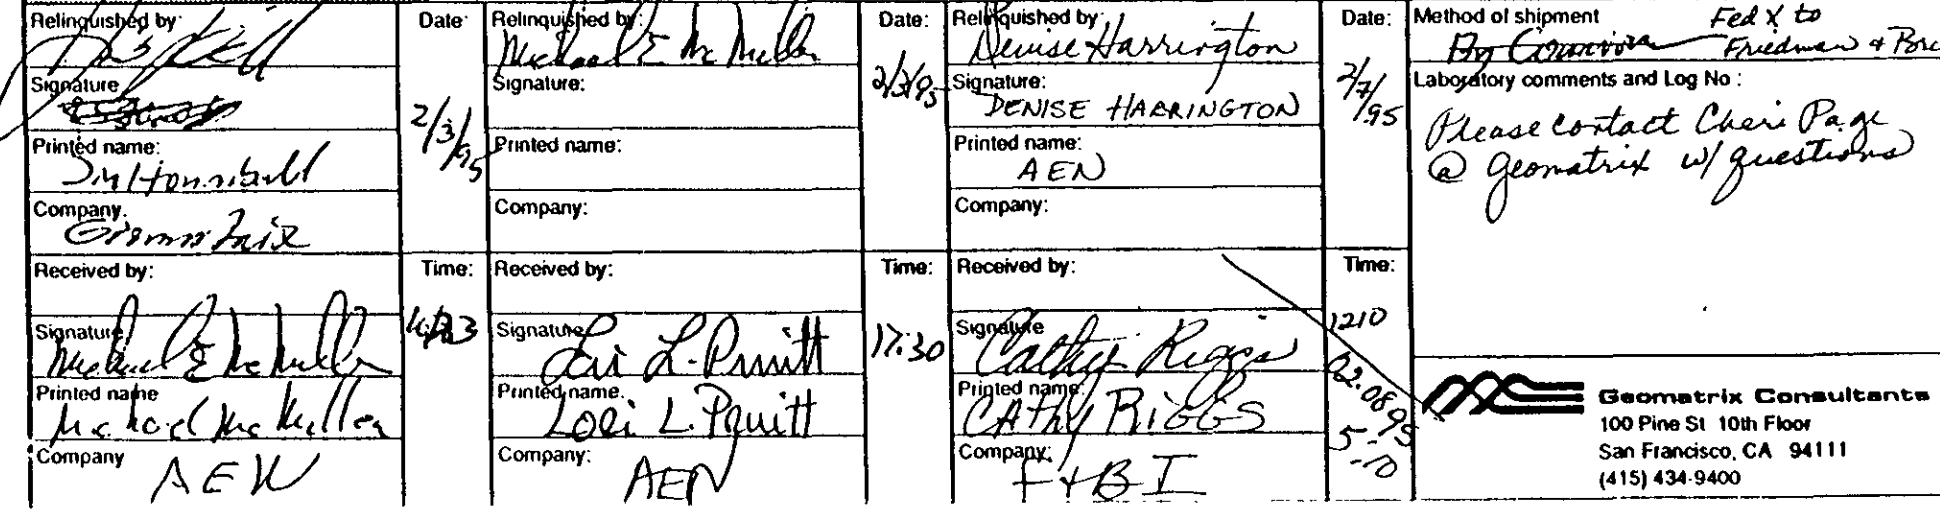 Relinquished by:
Signature
Printed name:
Company.
Date:
2/3/95
Received by:
Signature
Michael E McMullen
Printed name
Michael McMullen
Company
AEN
Time:
Relinquished by:
Michael E McMullen
Signature:
Printed name:
Company:
Date:
2/3/95
Received by:
Signature
Lori L. Pruitt
Printed name.
Lori L. Pruitt
Company:
AEN
Time:
17:30
Relinquished by:
Denise Harrington
Signature:
DENISE HARRINGTON
Printed name:
AEN
Company:
Date:
2/7/95
Received by:
Signature
Cathy Riggs
Printed name:
CAthy RiGGS
Company:
F+BI
Time:
1210
02.08.95
Method of shipment
Fed X to
By
Friedman + Bru
Laboratory comments and Log No :
Please contact Cheri Page
@ Geomatrix w/ questions
Geomatrix Consultants
100 Pine St 10th Floor
San Francisco, CA 94111
(415) 434-9400